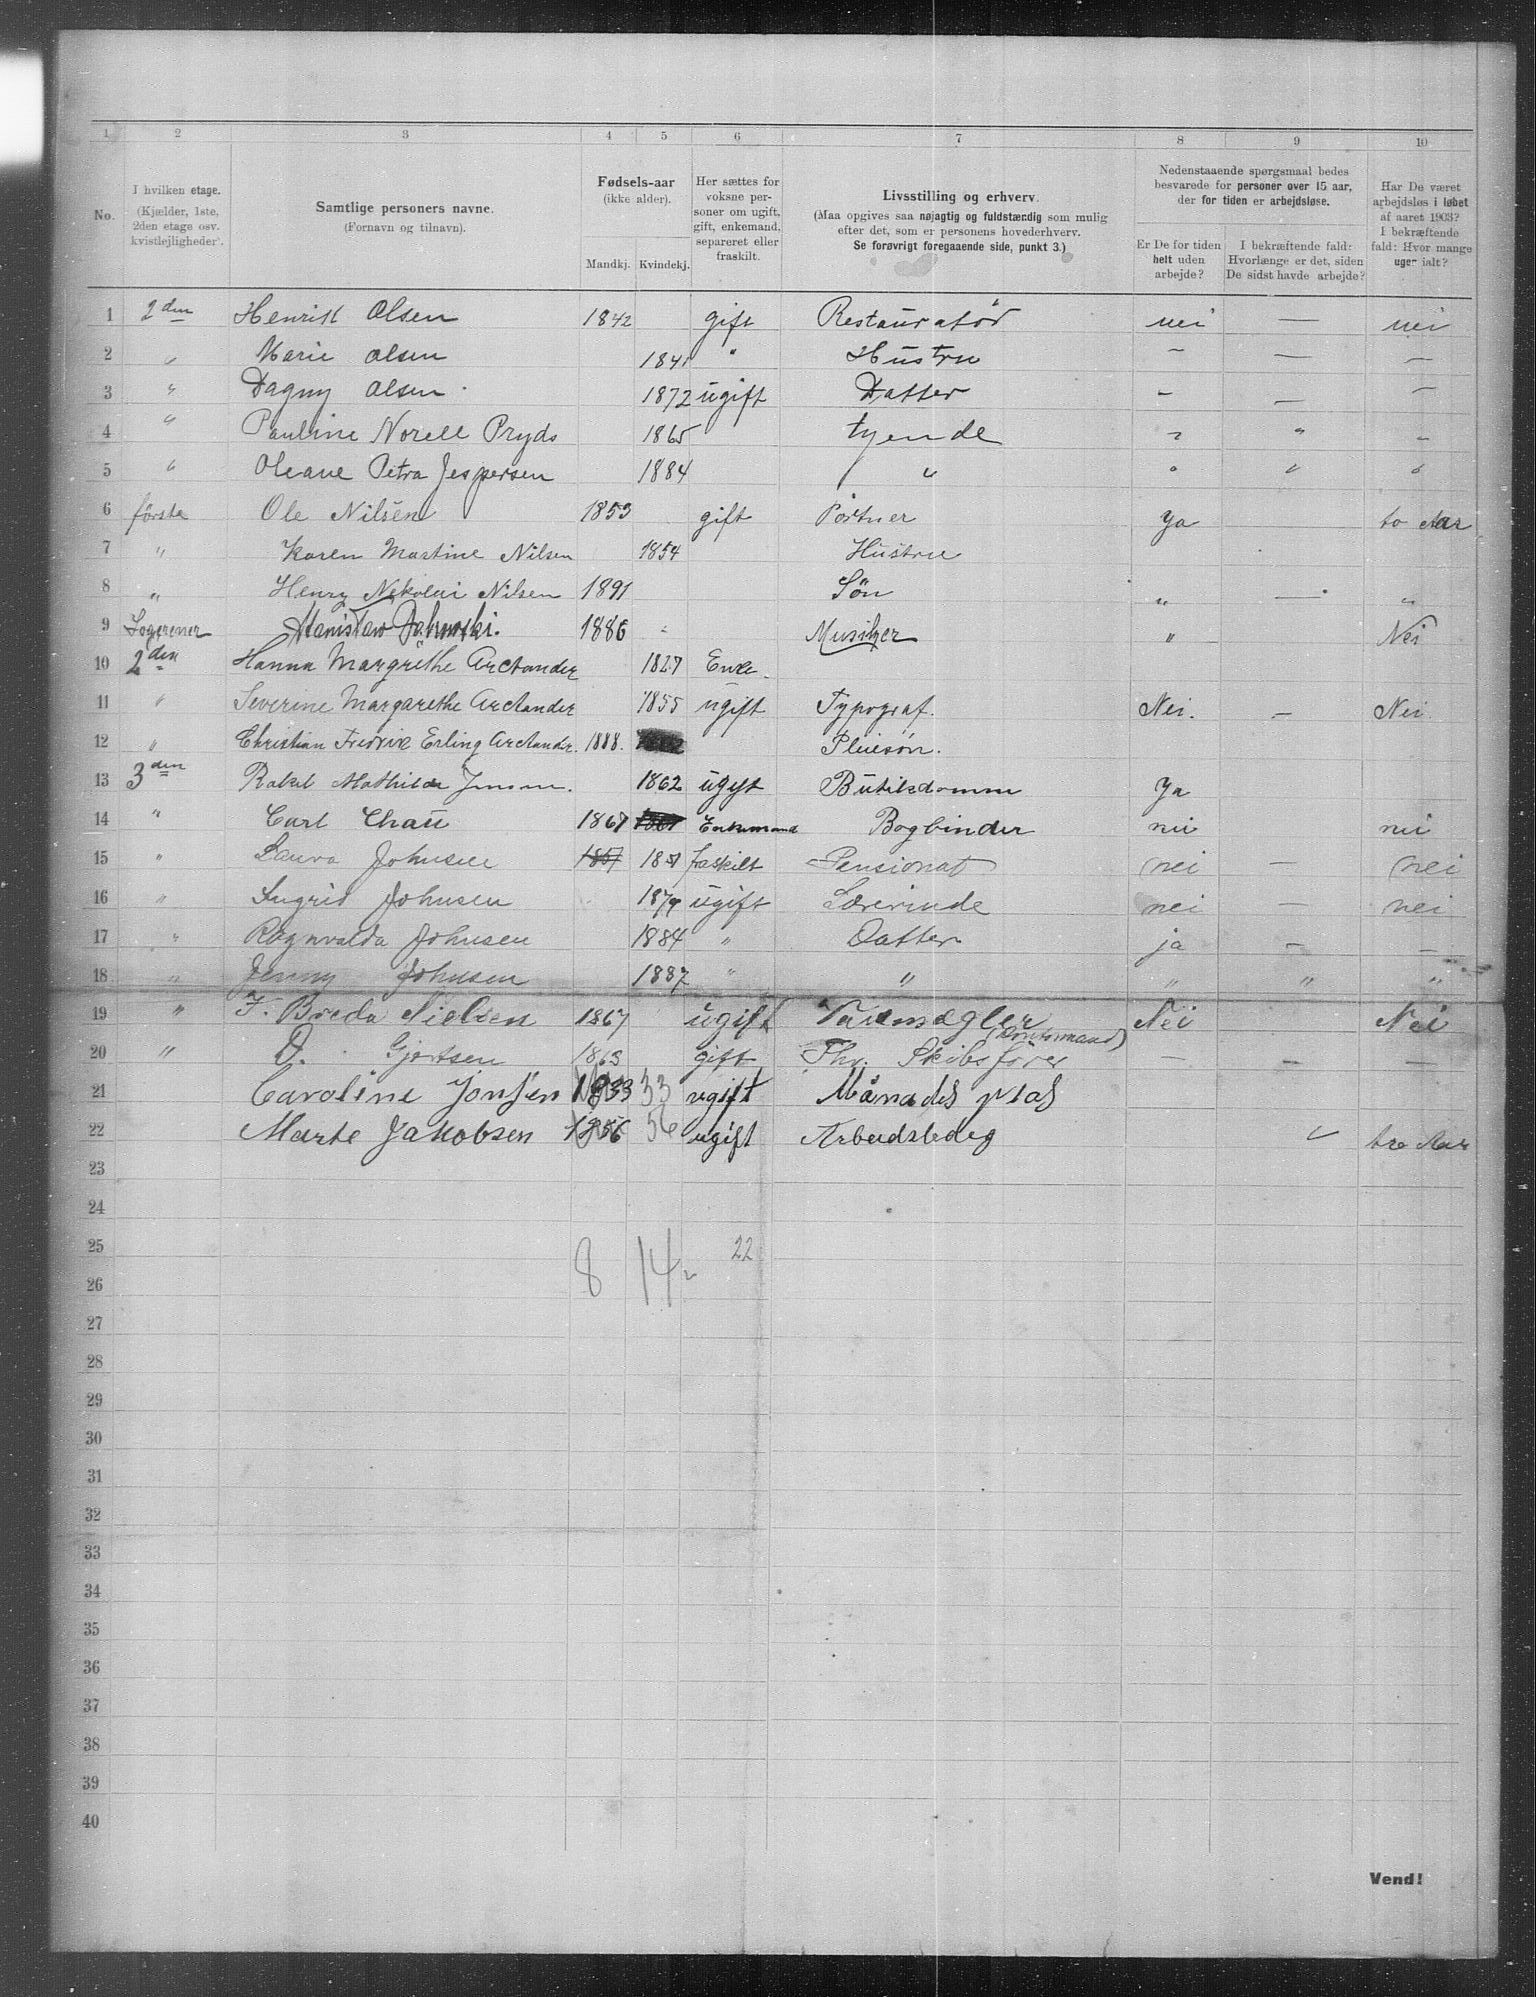 1 2 3 4 5 6 7 8 9 10
No.
I hvilken etage.
(Kjælder, 1ste,
2den etage osv.
kvistlejligheder).
Samtlige personers navne.
(Fornavn og tilnavn).
Fødsels-aar
(ikke alder).
Mandkj. Kvindekj.
Her sættes for
voksne per-
soner om ugift,
gift, enkemand,
separeret eller
fraskilt.
Livsstilling og erhverv.
(Maa opgives saa nøjagtig og fuldstændig som mulig
efter det, som er personens hovederhverv.
Se forøvrigt foregaaende side, punkt 3.)
Nedenstaaende spørgsmaal bedes
besvarede for personer over 15 aar,
der for tiden er arbejdsløse.
Er De for tiden
helt uden
arbejde?
I bekræftende fald:
Hvorlænge er det, siden
De sidst havde arbejde?
Har De været
arbejdsløs i løbet
af aaret 1903?
I bekræftende
fald: Hvor mange
uger ialt?
1 2den Henrik Olsen 1842 gift Restauratør nei — nei
2 " Marie Olsen 1841 " Hustru — — —
3 " Dagny Olsen 1872 ugift Datter — — —
4 " Pauline Norell Pryds 1865 tyende " " "
5 " Oleane Petra Jespersen 1884 " " " "
6 første Ole Nilsen 1853 gift Portner Ja to Aar
7 " Karen Martine Nilsen 1854 Hustru
8 " Henry Nikolai Nilsen 1891 Søn " — "
9 Logerener Stanislaw 1886 Musiker " Nei
10 2den Hanna Margrethe Arctander 1827 Enke
11 " Severine Margarethe Arctander 1855 ugift Typograf. Nei. — Nei.
12 " Christian Fredrik Erling Arctander. 1888. Pleiesøn.
13 3den Rakel Mathilde Jensen. 1862 ugift Butikdamme Ja
14 " Carl Thau 1867 Enkemand Bogbinder nei nei
15 " Laura Johnsen 1857 fraskilt Pensionat nei — nei
16 " Ingrid Johnsen 1879 ugift Lærerinde nei — nei
17 " Ragnvalda Johnsen 1884 " Datter ja — —
18 " Jenny Johnsen 1887 " " " " "
19 " F. Breda Nielsen 1867 ugift Varemægler Nei Nei
(Kontormand)
20 " O. Gjertsen 1863 gift Fhv. Skibsfører — — —
21 Caroline Jonsen 1833 33 ugift Månads plas
22 Marte Jakobsen 1856 56 ugift Arbeidsledig " tre Aar
23
24
25 22
26 8 14
27
28
29
30
31
32
33
34
35
36
37
38
39
40
Vend!